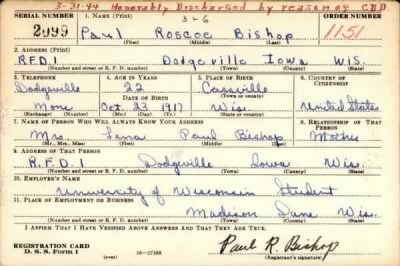 3-31-44 Honorably Discharged by reason of CDD
SERIAL NUMBER 1. NAME (Print) 3-6 ORDER NUMBER
2099 Paul Roscoe Bishop 1151
(First) (Middle) (Last)
2. ADDRESS (Print)
R.F.D.1 Dodgeville Iowa Wis.
(Number and street or R. F. D. number) (Town) (County) (State)
3. TELEPHONE 4. AGE IN YEARS 5. PLACE OF BIRTH 6. COUNTRY OF CITIZENSHIP
Dodgeville 22 Cassville
DATE OF BIRTH (Town or county)
None Oct. 23 1917 Wis. United States
(Exchange) (Number) (Mo.) (Day) (Yr.) (State or country)
7. NAME OF PERSON WHO WILL ALWAYS KNOW YOUR ADDRESS 8. RELATIONSHIP OF THAT PERSON
Mrs. Paul Bishop Mother
(Mr., Mrs., Miss) (First) (Middle) (Last)
9. ADDRESS OF THAT PERSON
R.F.D. 1 Dodgeville Iowa Wis.
(Number and street or R. F. D. number) (Town) (County) (State)
10. EMPLOYER'S NAME
University of Wisconsin Student
11. PLACE OF EMPLOYMENT OR BUSINESS
Madison Dane Wis.
(Number and street or R. F. D. number) (Town) (County) (State)
I AFFIRM THAT I HAVE VERIFIED ABOVE ANSWERS AND THAT THEY ARE TRUE.
REGISTRATION CARD
D. S. S. Form 1 (over) 16-17105 Paul R. Bishop
(Registrant's signature)